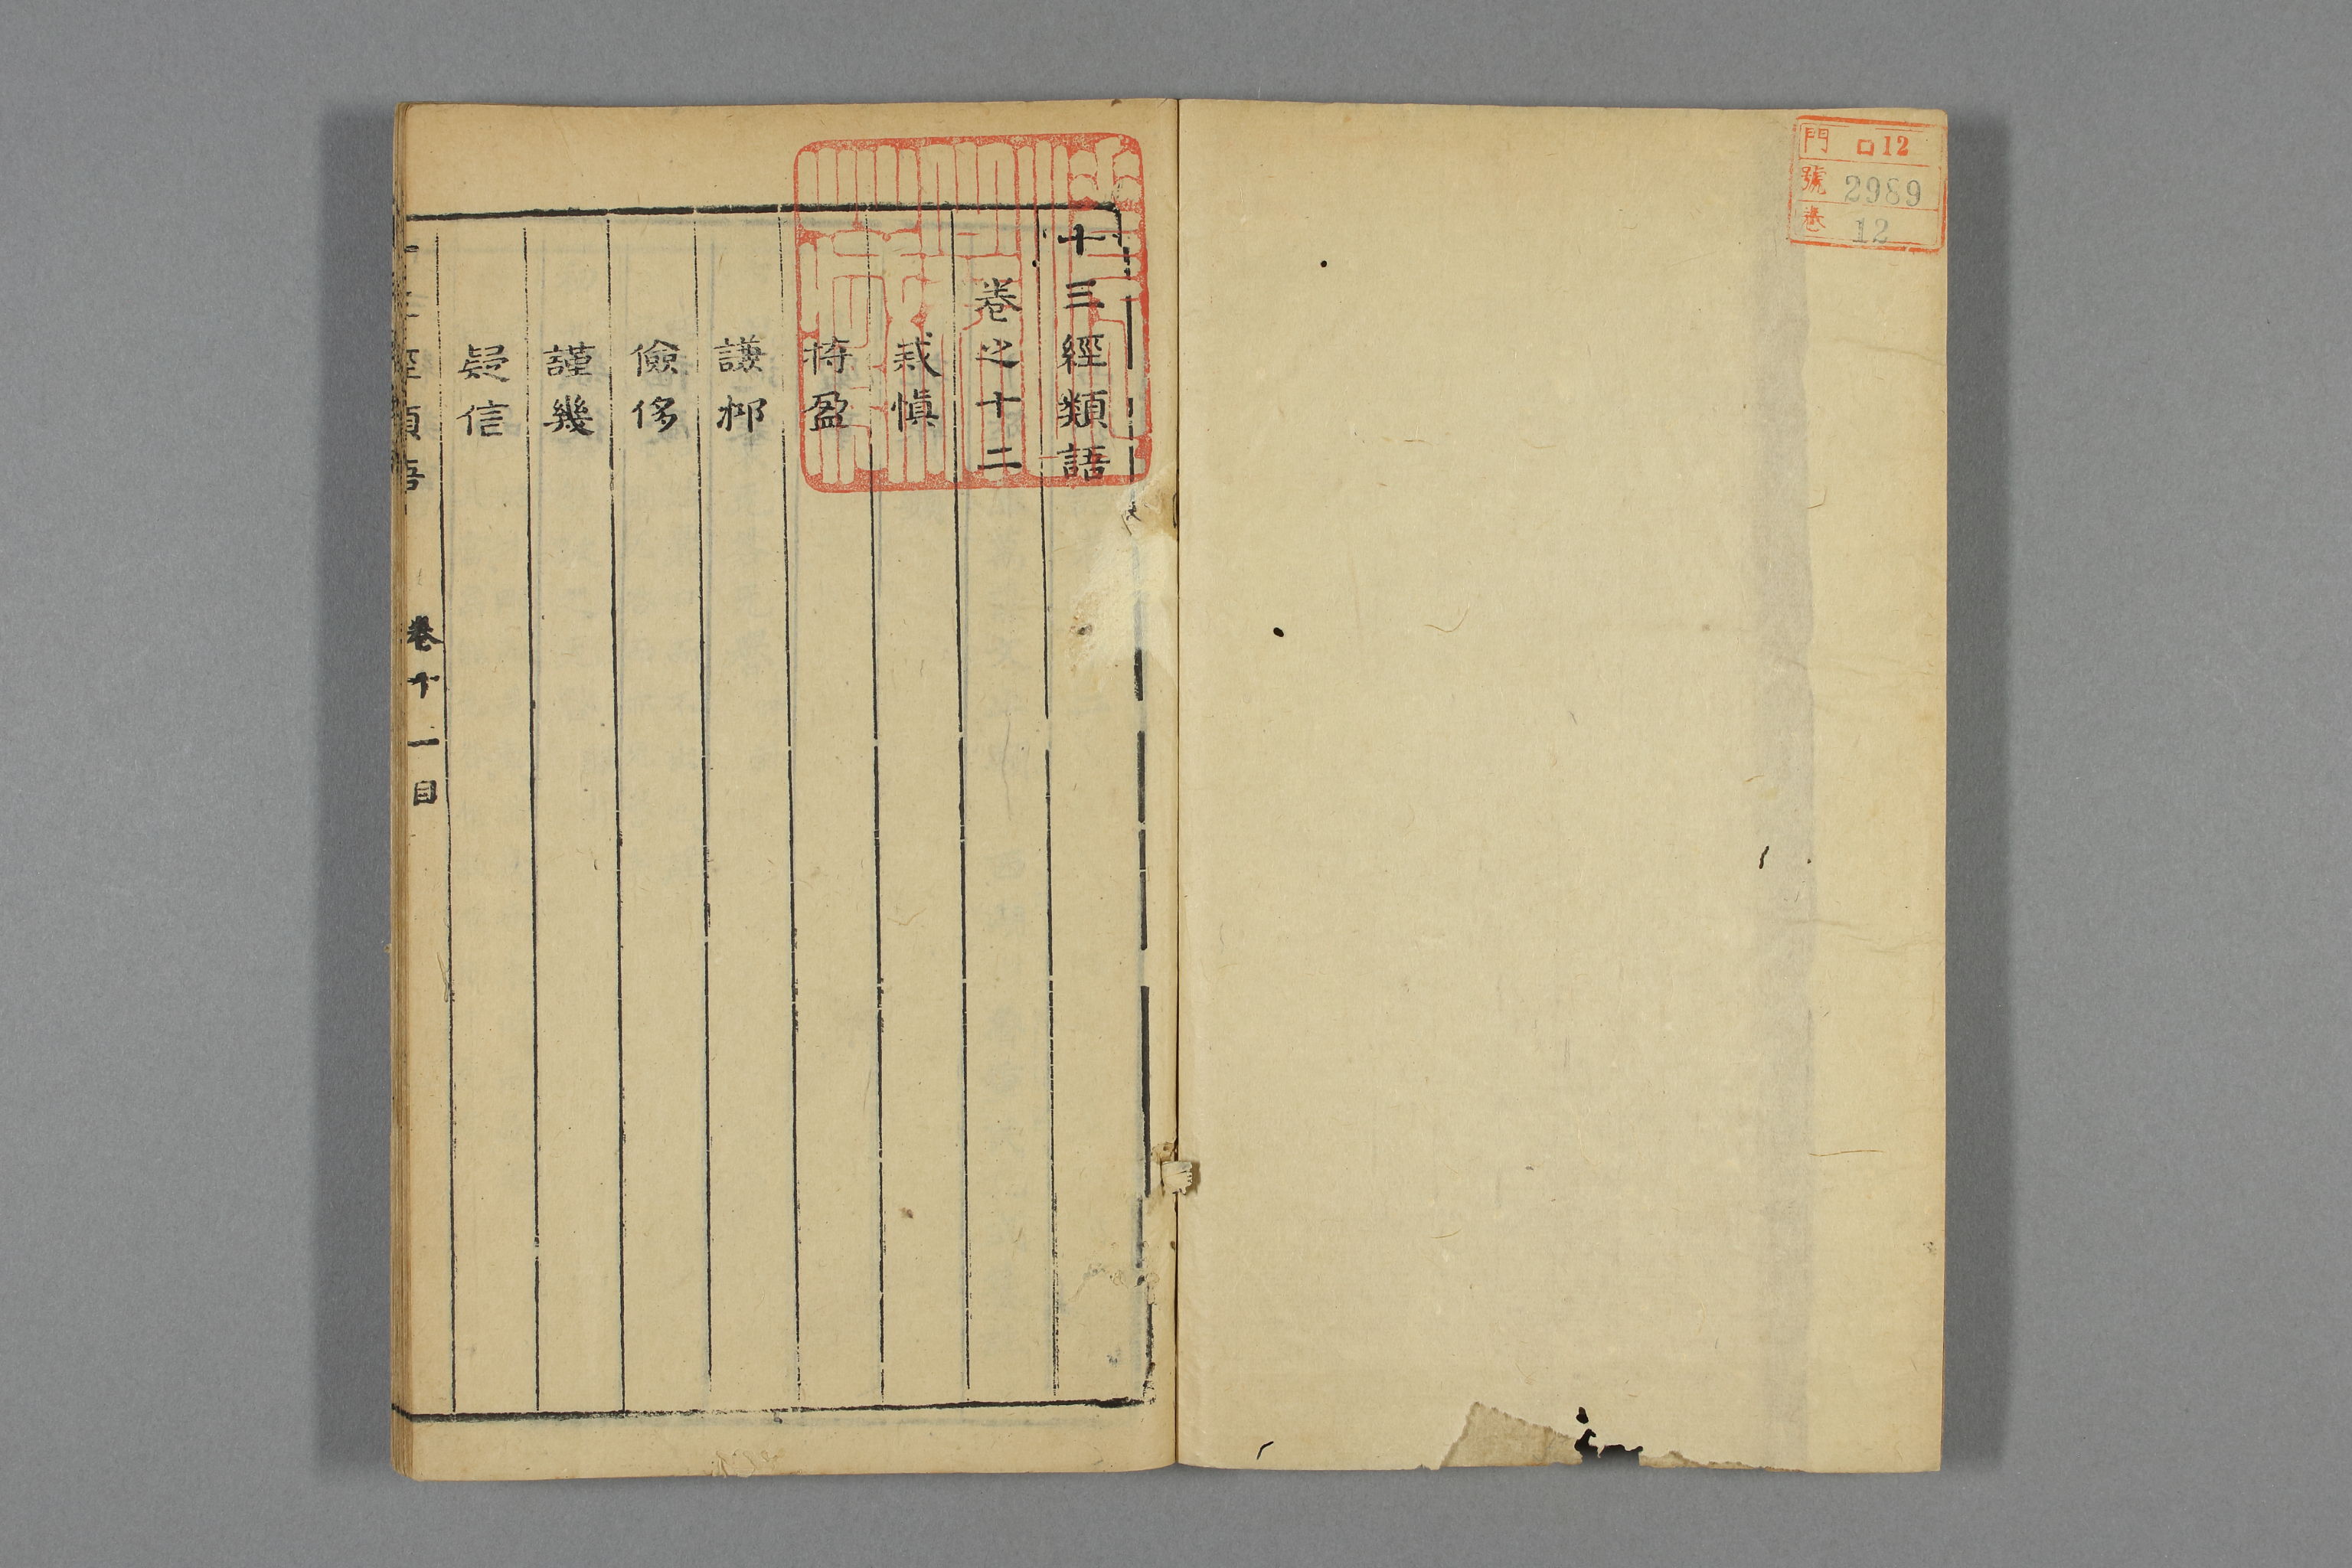 門 口12
號 2989
卷 12
十三經類語
卷之十二
戒慎
持盈
謙邪
儉侈
謹幾
疑信
卷十二目